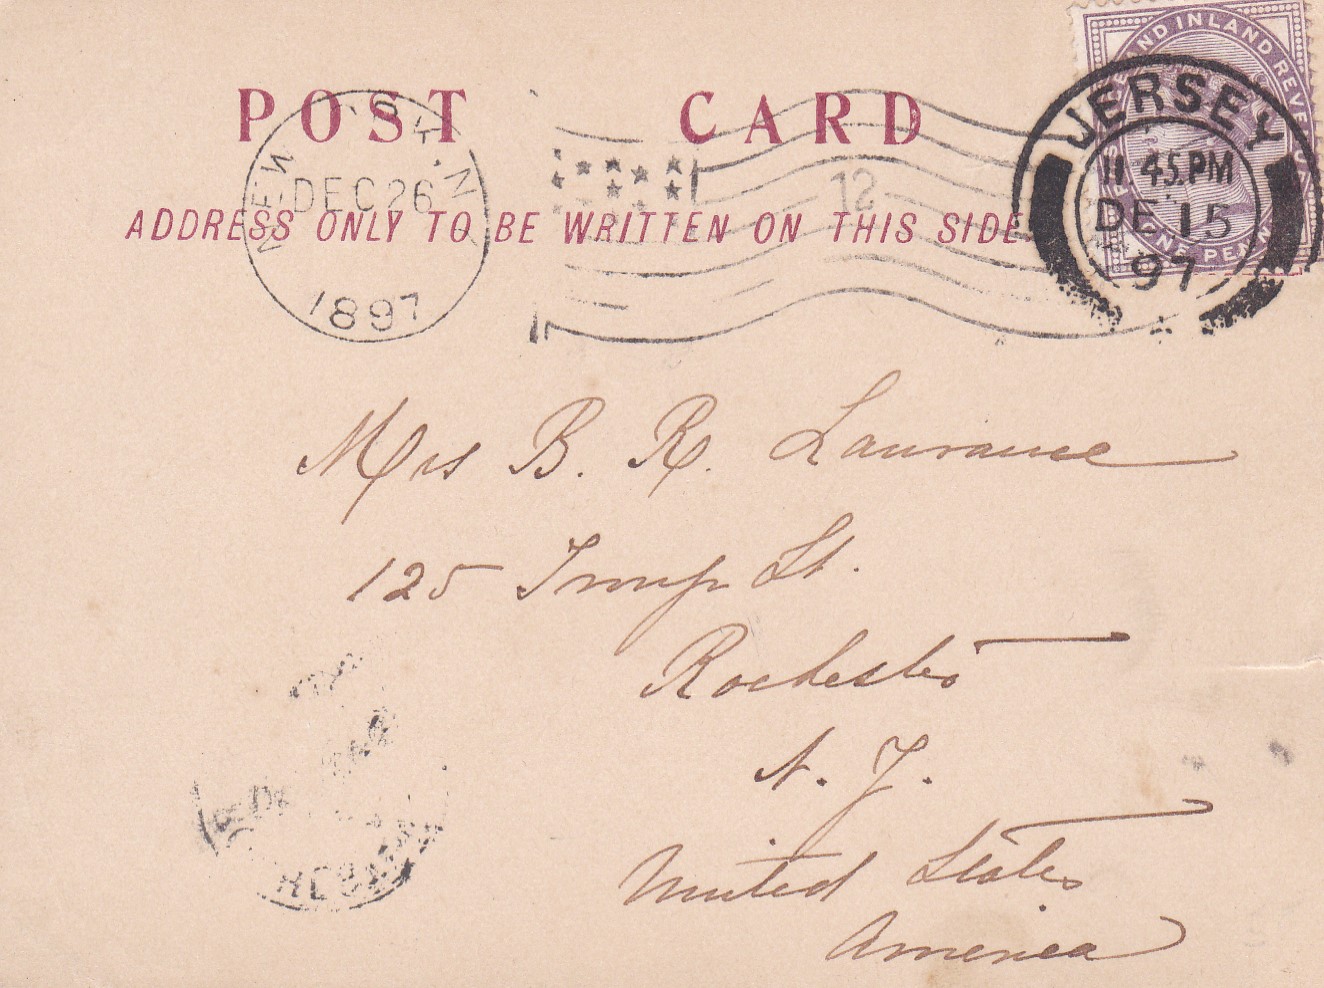 POST CARD
ADDRESS ONLY TO BE WRITTEN ON THIS SIDE
NEW YORK, N.Y.
DEC 26
12
1897
AND INLAND REVE
ONE PENNY
JERSEY
11.45.PM
DE 15
97
Mrs B. R. Laurance
125 St.
Rochester
N. Y.
United States
America